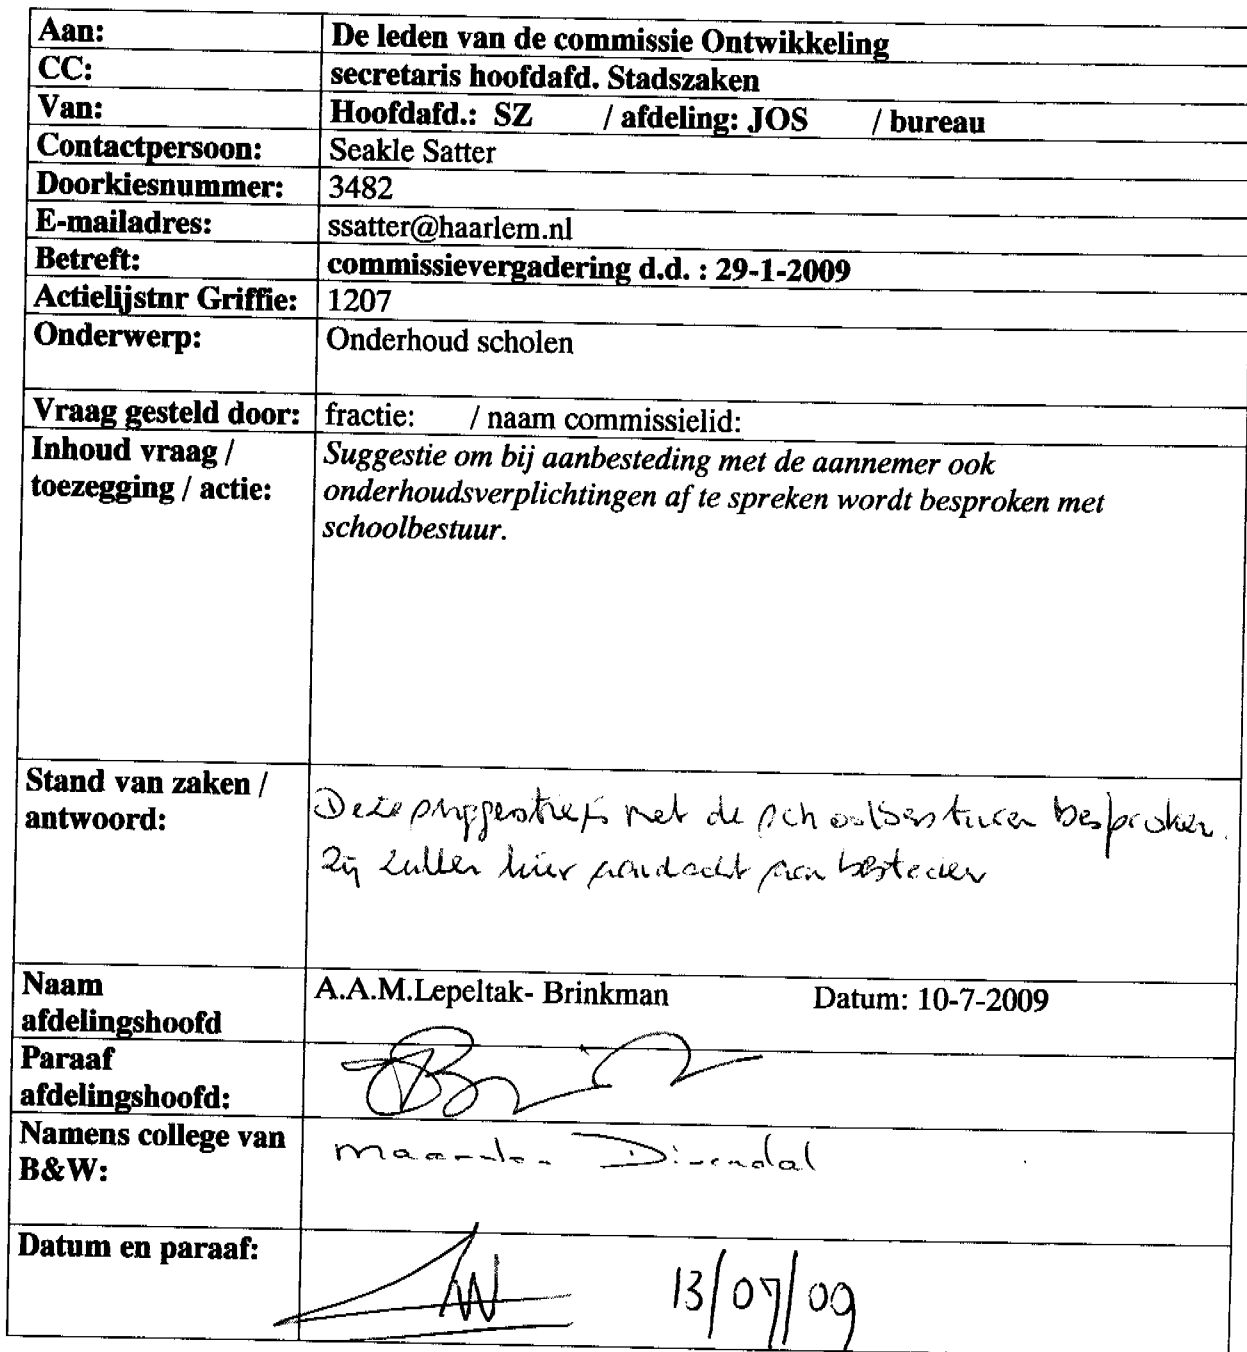 Aan: De leden van de commissie Ontwikkeling
CC: secretaris hoofdafd. Stadszaken
Van: Hoofdafd.: SZ / afdeling: JOS / bureau
Contactpersoon: Seakle Satter
Doorkiesnummer: 3482
E-mailadres: ssatter@haarlem.nl
Betreft: commissievergadering d.d. : 29-1-2009
Actielijstnr Griffie: 1207
Onderwerp: Onderhoud scholen
Vraag gesteld door: fractie: / naam commissielid:
Inhoud vraag /
toezegging / actie:
Suggestie om bij aanbesteding met de aannemer ook
onderhoudsverplichtingen af te spreken wordt besproken met
schoolbestuur.
Stand van zaken /
antwoord:
Deze suggestie is met de schoolbesturen besproken.
Zij zullen hier aandacht aan besteden
Naam
afdelingshoofd
A.A.M.Lepeltak- Brinkman Datum: 10-7-2009
Paraaf
afdelingshoofd:
Namens college van
B&W:
Maarten Divendal
Datum en paraaf:
13/07/09